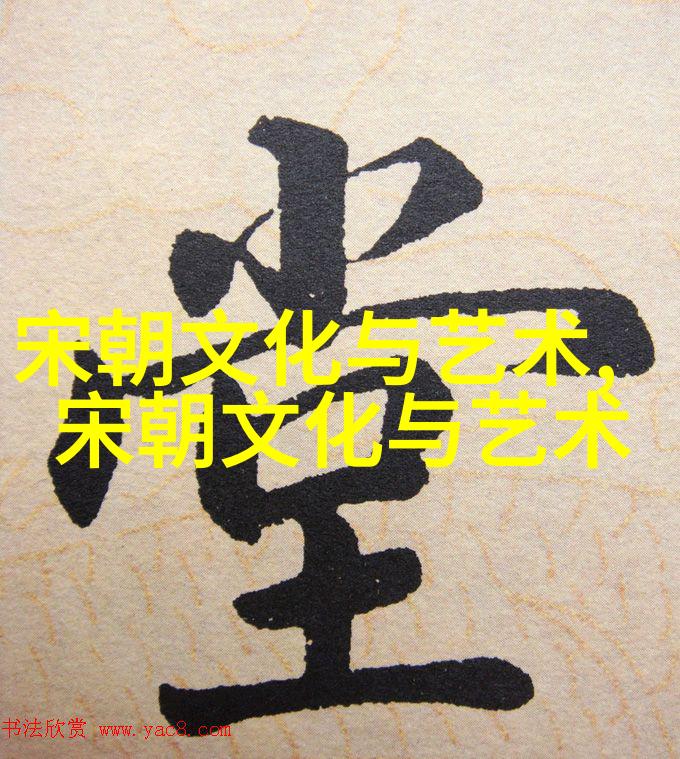 堂
宋朝文化与艺术,
宋朝文化与艺术
书法欣赏 www.yac8.com